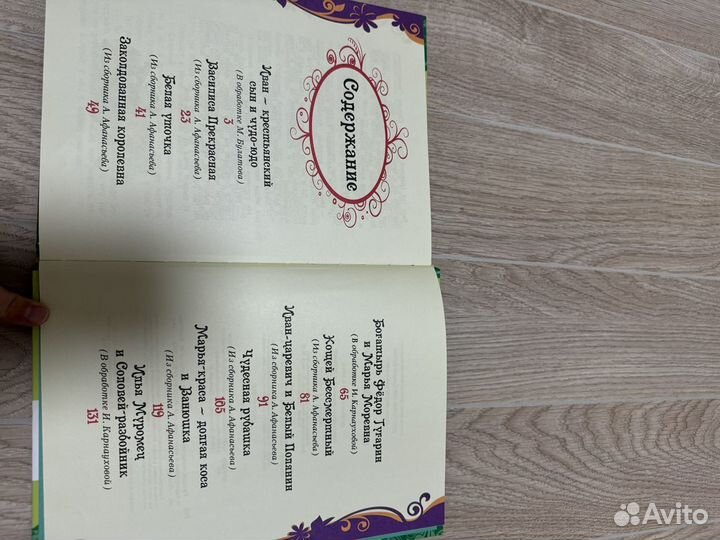 Содержание
Иван – крестьянский
сын и чудо-юдо
(В обработке М. Булатова)
3
Василиса Прекрасная
(Из сборника А. Афанасьева)
23
Белая уточка
(Из сборника А. Афанасьева)
41
Заколдованная королевна
(Из сборника А. Афанасьева)
49
Богатырь Фёдор Тугарин
и Марья Моревна
(В обработке И. Карнауховой)
65
Кощей Бессмертный
(Из сборника А. Афанасьева)
81
Иван-царевич и Белый Полянин
(Из сборника А. Афанасьева)
91
Чудесная рубашка
(Из сборника А. Афанасьева)
105
Марья-краса – долгая коса
и Ванюшка
(Из сборника А. Афанасьева)
119
Илья Муромец
и Соловей-разбойник
(В обработке И. Карнауховой)
131
Avito